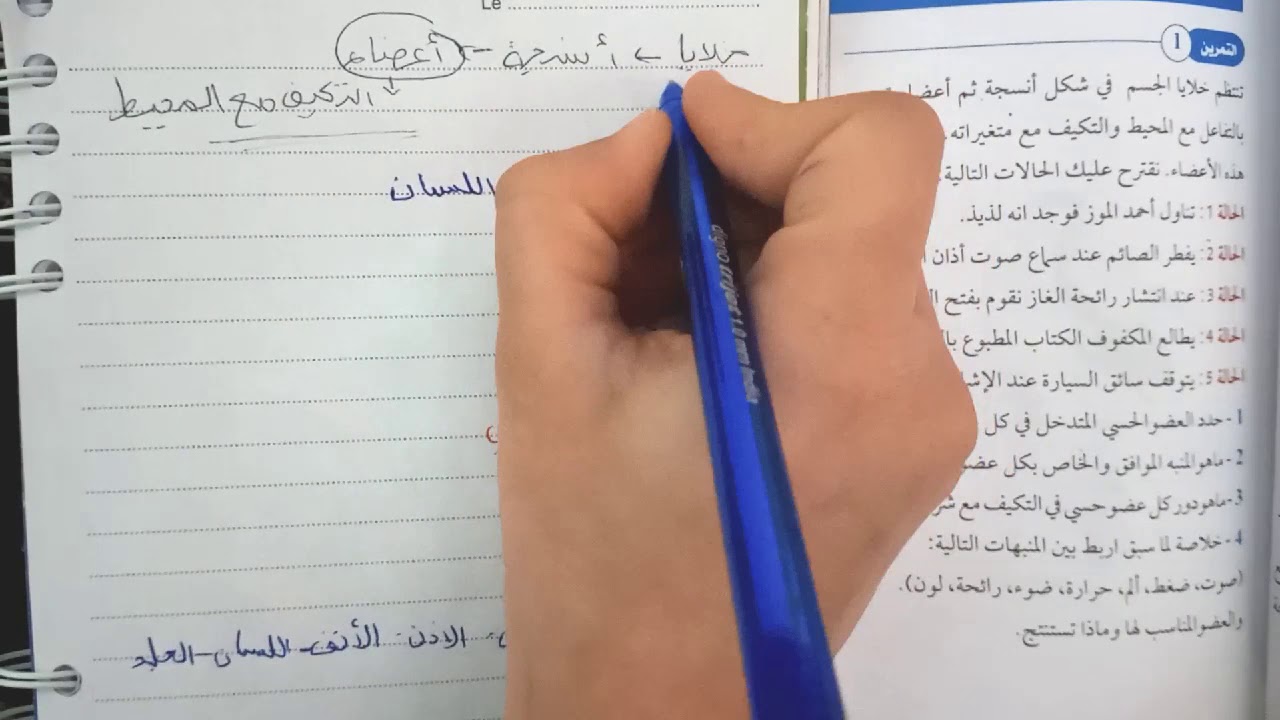 Le
خلايا ← أنسجة – أعضاء
التكيف مع المحيط
اللسان
الاذن - الأنف - اللسان - الجلد
التمرين 1
تنتظم خلايا الجسم في شكل أنسجة ثم أعضا
بالتفاعل مع المحيط والتكيف مع متغيراته.
هذه الأعضاء. نقترح عليك الحالات التالية
الحالة 1: تناول أحمد الموز فوجد انه لذيذ.
الحالة 2: يفطر الصائم عند سماع صوت أذان
الحالة 3: عند انتشار رائحة الغاز نقوم بفتح
الحالة 4: يطالع المكفوف الكتاب المطبوع
الحالة 5: يتوقف سائق السيارة عند
1- حدد العضو الحسي المتدخل في كل
2- ماهو المنبه الموافق والخاص بكل عضو
3- ماهو دور كل عضو حسي في التكيف مع
4- خلاصة لما سبق اربط بين المنبهات التالية:
(صوت، ضغط، ألم، حرارة، ضوء، رائحة، لون).
والعضو المناسب لها وماذا تستنتج.